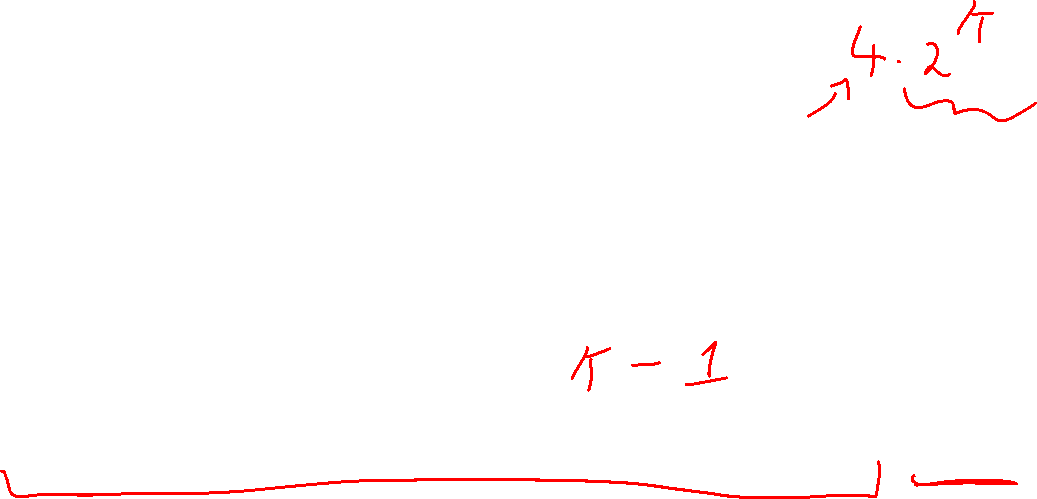 4 · 2^k
k - 1